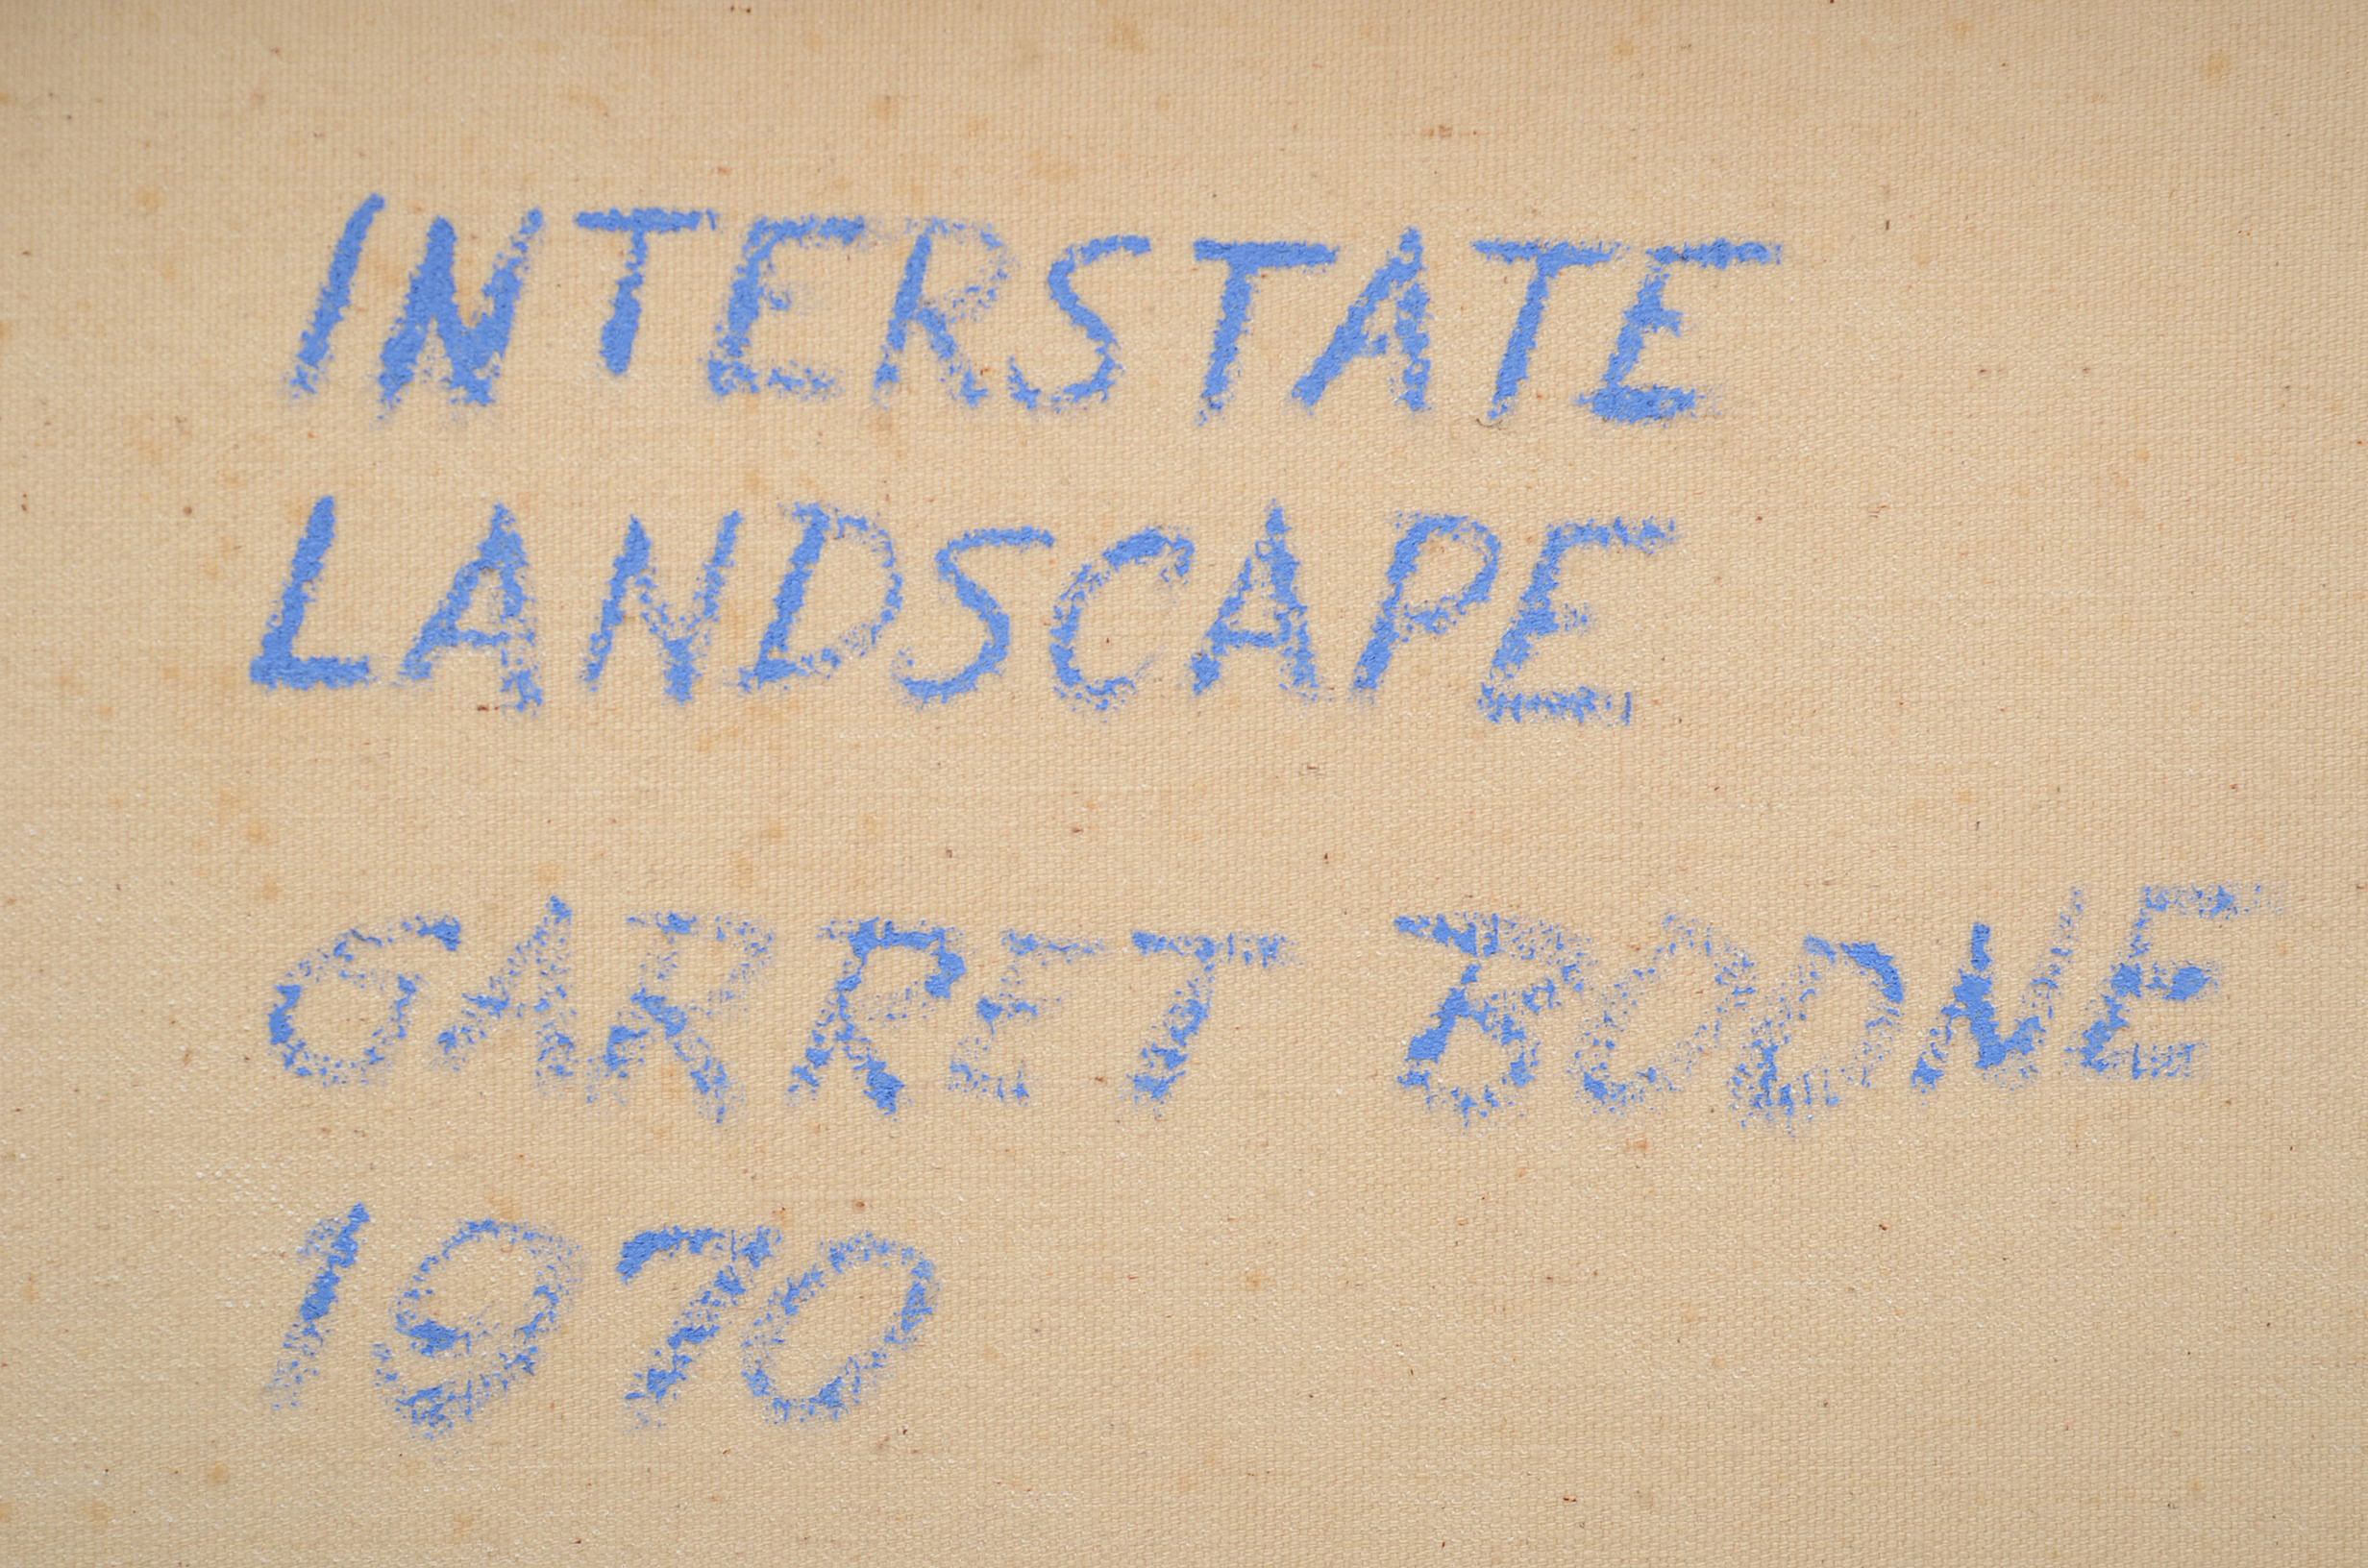 INTERSTATE
LANDSCAPE
GARRET BOONE
1970